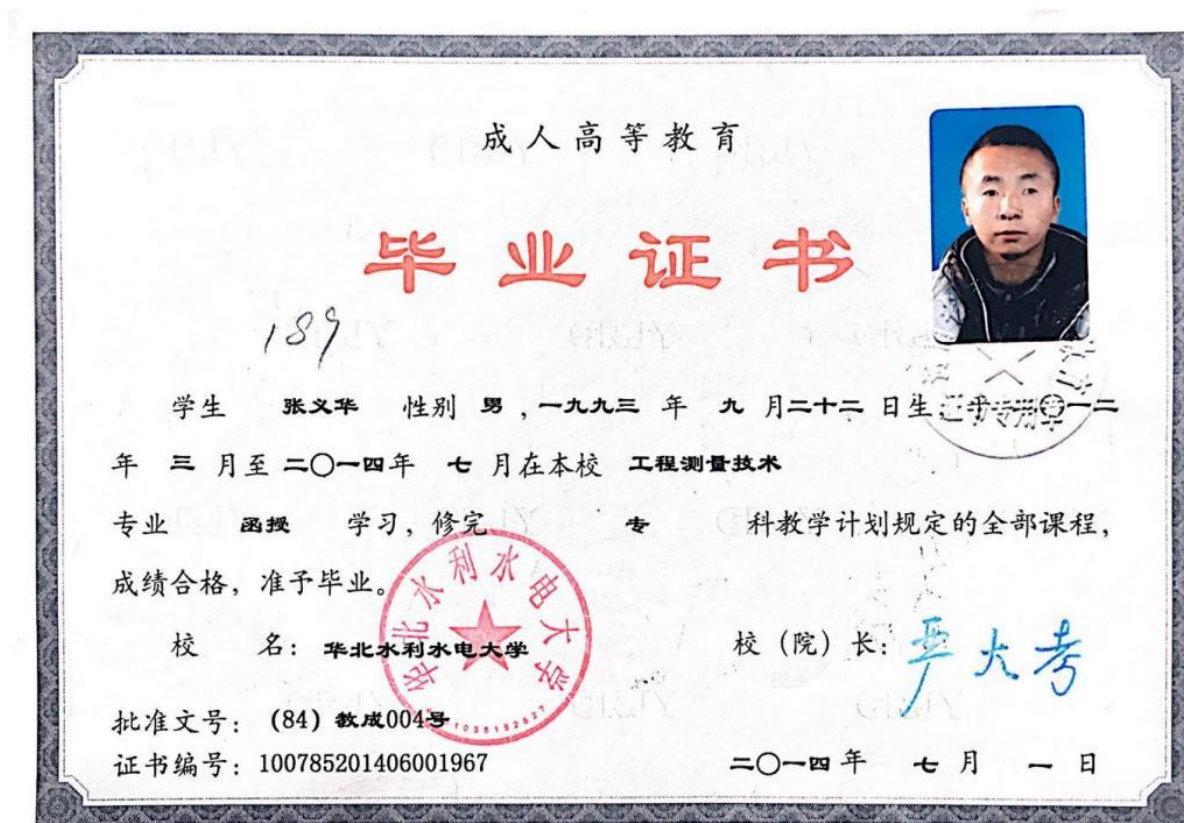 成人高等教育
毕业证书
189
学生 张义华 性别 男，一九九三 年 九 月二十二 日生，于二〇一二
年 三 月至 二〇一四年 七 月在本校 工程测量技术
专业 函授 学习，修完 专 科教学计划规定的全部课程，
成绩合格，准予毕业。
校 名：华北水利水电大学
校（院）长：严大考
华北水利水电大学
批准文号：(84) 教成004号
证书编号：100785201406001967
二〇一四年 七 月 一 日
证书专用章